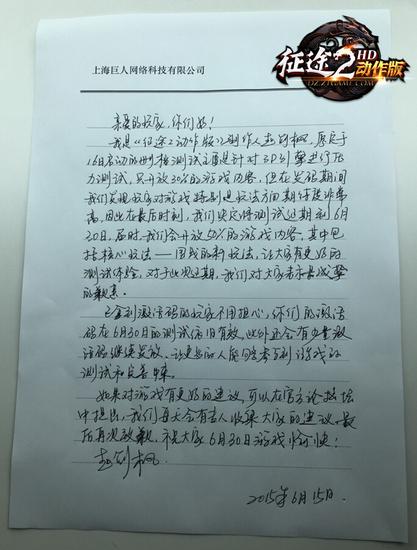 上海巨人网络科技有限公司
征途2HD
动作版
DZ.ZTGAME.COM
亲爱的玩家,你们好!
我是《征途2动作版》制作人赵剑枫,原定于
16日启动的删档测试主要是针对3D引擎进行压
力测试,只开放30%的游戏内容,但在发码期间
我们发现玩家对游戏特别是玩法方面期待度非常
高,因此在最后时刻,我们决定将测试延期到6月
30日,届时,我们会开放50%的游戏内容,其中包
括核心玩法——国战的新玩法,让大家有更好的
测试体验,对于此次延期,我们对大家表示最诚挚
的歉意。
已拿到激活码的玩家不用担心,你们的激活
码在6月30日的测试依旧有效,此外还会有少量激
活码继续发放,让更多的人能够参与到游戏的
测试和完善中来。
如果对游戏有更好的建议,可以在官方论坛
中提出,我们每天会有专人收集大家的建议,最
后再次致歉,祝大家6月30日游戏愉快!
赵剑枫
2015年6月15日.